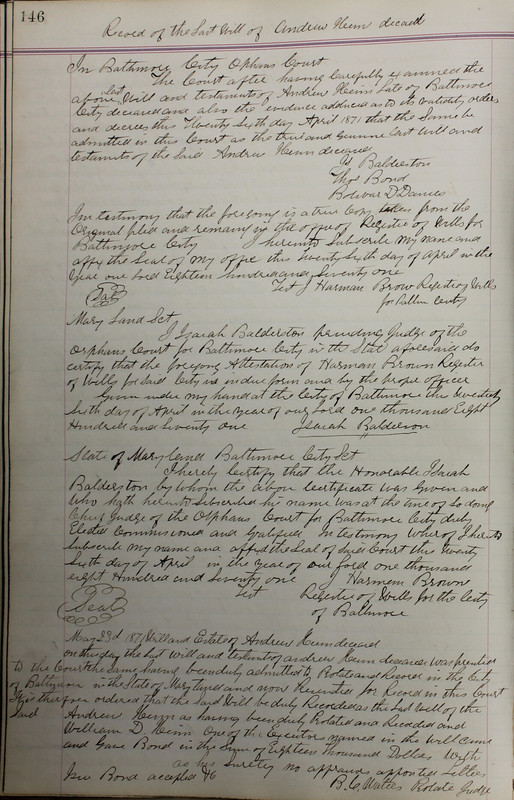 146
Record of the Last Will of Andrew Heim decaed
In Baltimore City Ophans Court
The Court after having Carefully examined the
above Last Will and testimute of Andrew Heim Late of Baltimore
City deceased and also the evidence adduced as to its validity orders
and decrees this Twenty Sixth day April 1871 that the Same be
admitted in this Court as the true and Genuine Last Will and
testimute of the Said Andrew Heim deceased
J Balderston
Thos Bond
Bolivar D Danels
In testimony that the foregoing is a true Copy taken from the
Original filed and remaining in the office of Register of Wills for
Baltimore City I hereunto Subscribe My name and
affix the Seal of My office this twenty Sixth day of April in the
Year our Lord Eighteen hundred and Seventy one
Test J Harman Brow Register of Wills
for Baltim City
Seal
Mary Land Sct
I Isaiah Balderston presiding Judge of the
Orphans Court for Baltimore City in the State aforesaid do
certify that the foregoing Attestation of Harman Brown Register
of Wills for Said City is in due form and by the proper officer
Given under my hand at the City of Baltimore this twenty
Sixth day of April in the Year of our Lord one thousand Eight
Hundred and Seventy one Isaiah Balderson
State of Maryland Baltimore City Sct
I hereby Certify that the Honorable Isaiah
Balderston by whom the above Certificate was Given and
who hath hereunto Subscribed his name was at the time of So doing
Chief Judge of the Orphans Court for Baltimore City duly
Elected Commissioned and Qualified In testimony Whereof I hereunto
Subscribe My name and affix the Seal of Said Court this twenty
Sixth day of April in the Year of our Lord one thousand
eight Hundred and Seventy one J Harmam Brown
Test Register of Wills for the City
Seal of Baltimore
May 23d 1871 Will and Estate of Andrew Heim decead
on this day the Last Will and testimute of Andrew Heim deceased was presented
to the Court the Same having been duly admitted to Probate and Record in the City
of Baltimore in the State of Mary Land and now presented for Record in this Court
It is therefore ordered that the Said Will be duly Recorded as the Last Will of the
Said Andrew Heim as having been duly Probated and Recorded and
William D Heim One of the Executors named in the Will Came
and Gave Bond in the Sum of Eighteen thousand Dollars With
as his Surety no appraisers appointed Letters
Issu Bond accepted &c
B. C. Waties Probate Judge